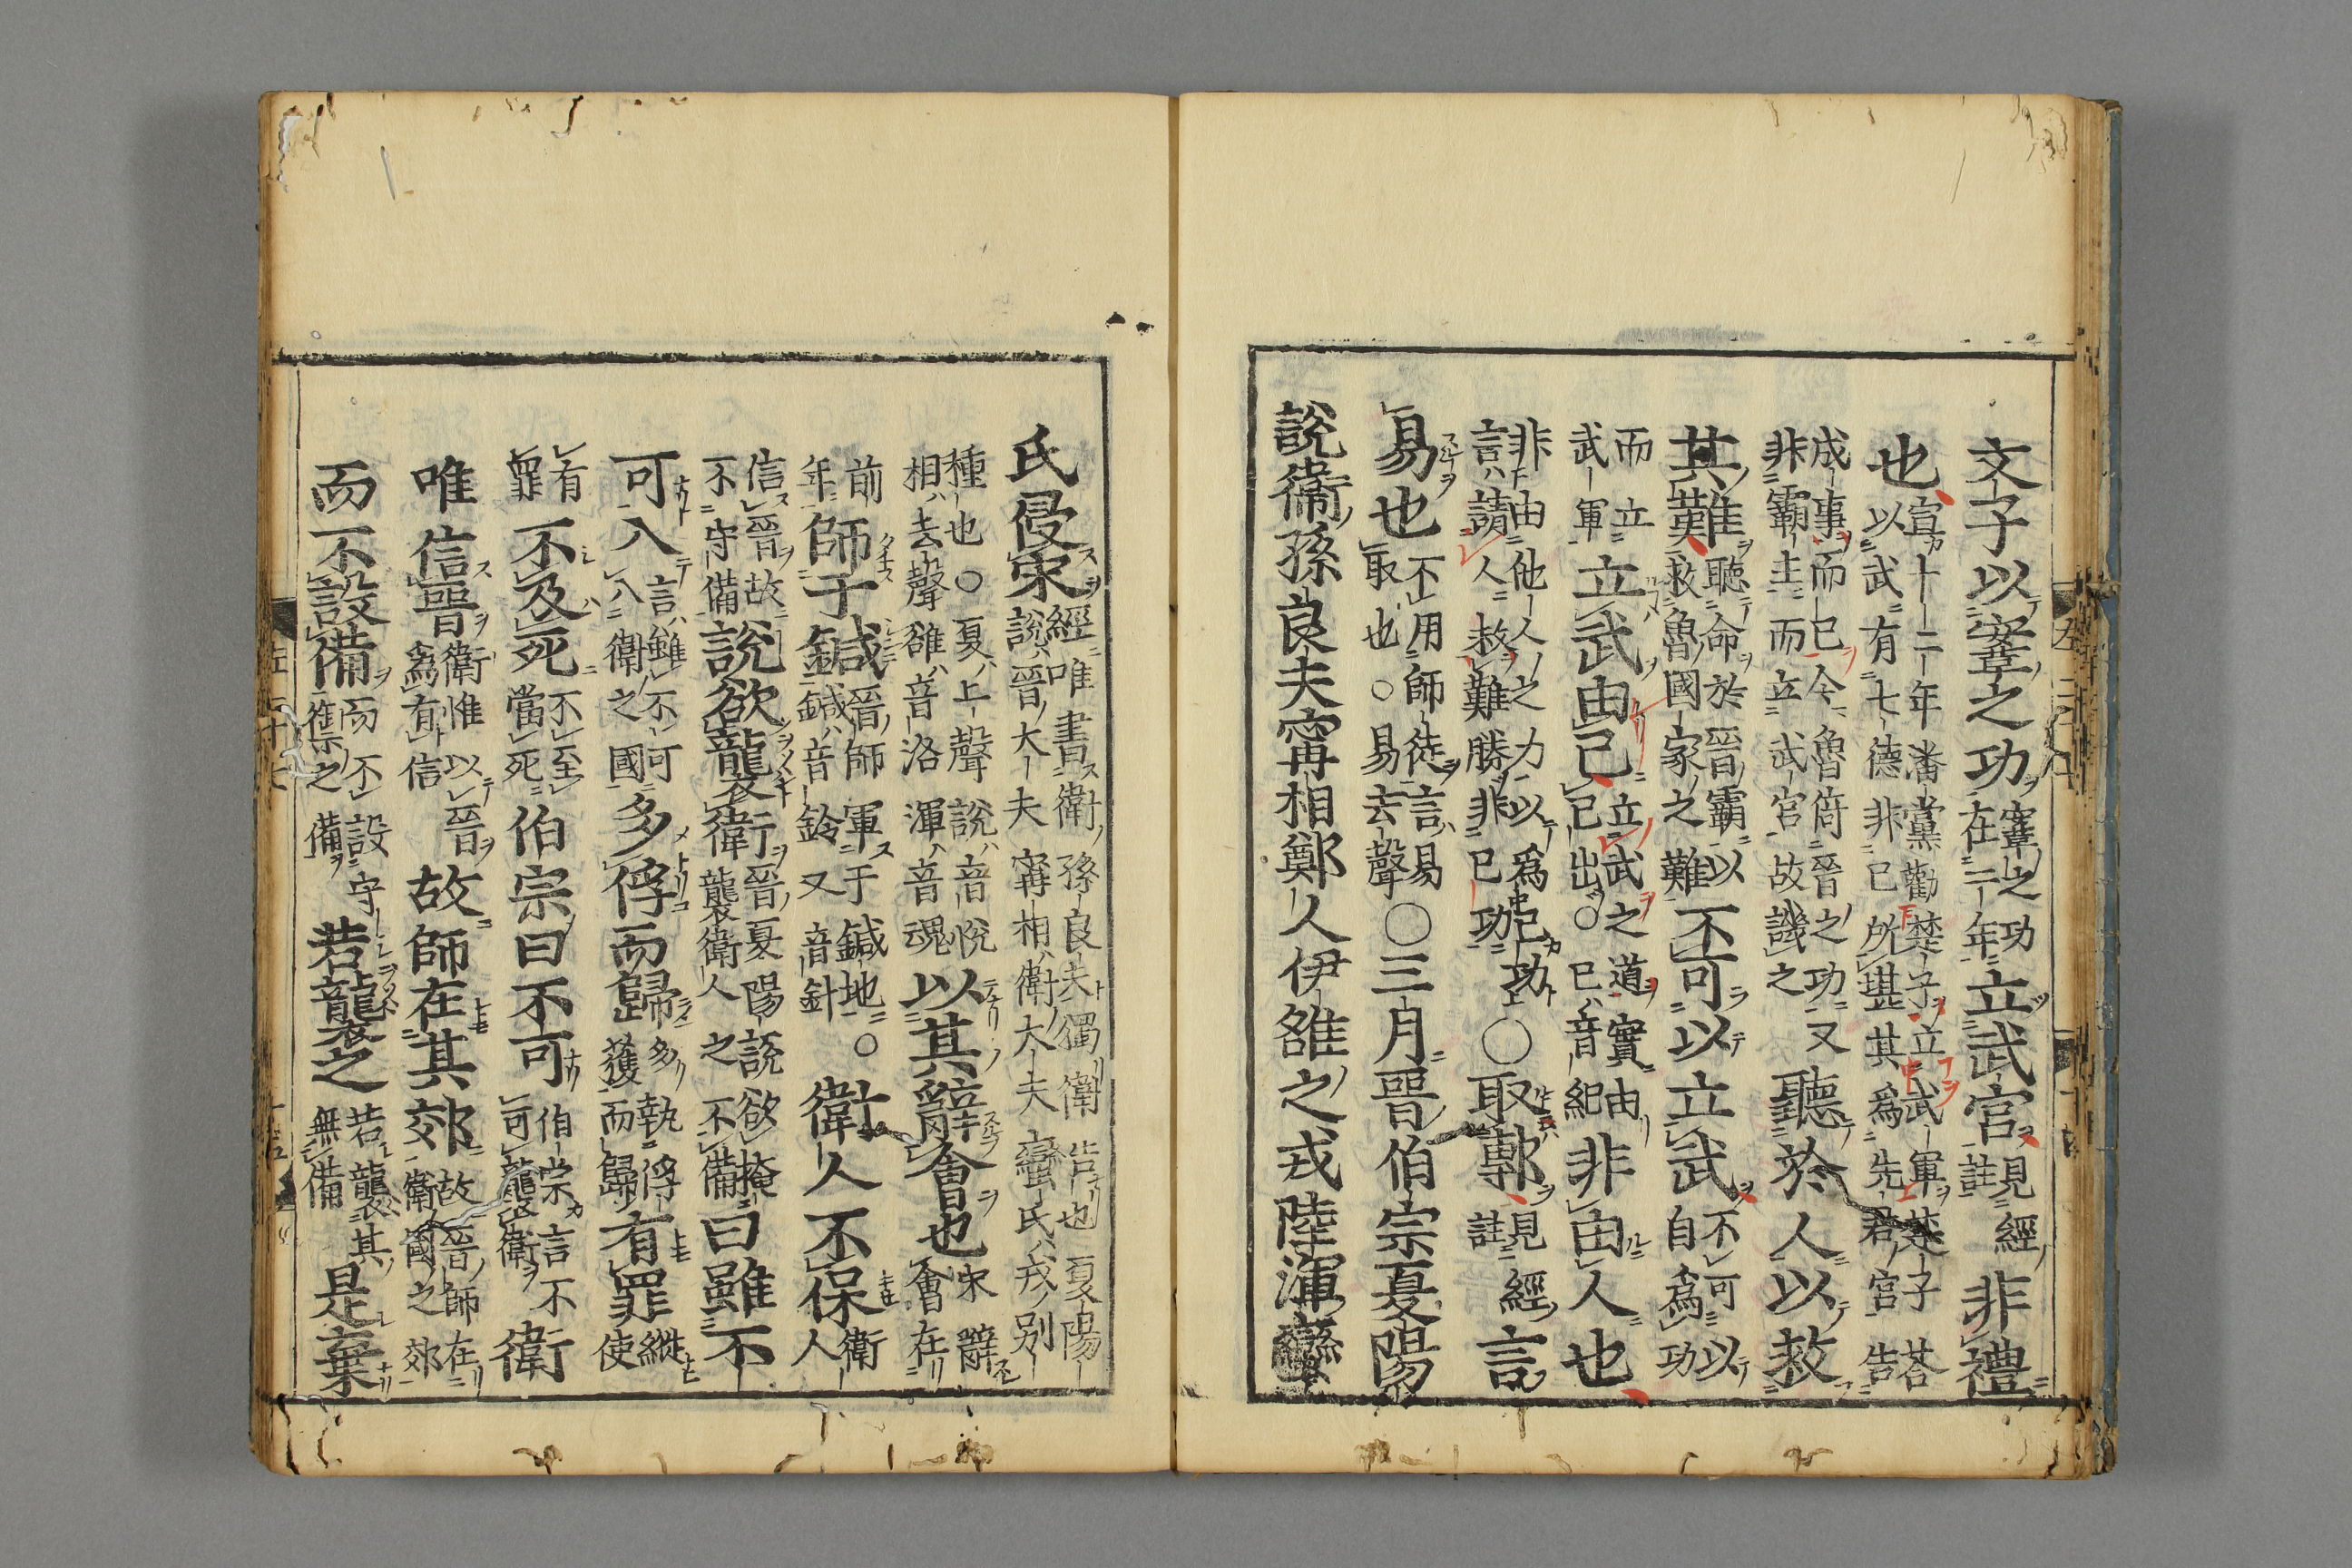 文子以鞌之功鞌之功在二年立武宮見經註非禮
也宣十二年潘黨勸楚子立武軍楚子荅以武有七德非己所堪其爲先君宮告
成事而已今魯倚晉之功又非霸主而立武宮故譏之聽於人以救
其難聽命於晉霸以救魯國家之難不可以立武不可以自爲功
而立武軍立武由己立武之道實由己出○己音紀非由人也
非由他人之力以爲己功言請人救難勝非己功○取鄟見經註言
易也不用師徒言易取也○易去聲○三月晉伯宗夏陽
說衞孫良夫甯相鄭人伊雒之戎陸渾蠻
氏侵宋經唯書衛孫良夫獨衛告也夏陽說晉大夫甯相衛大夫蠻氏戎別
種也○夏上聲說音悅相去聲雒音洛渾音魂以其辭會也宋辭會在
前年師于鍼晉師軍于鍼地○鍼音鈴又音針衛人不保衛人
信晉故不守備說欲襲衛晉夏陽說欲掩襲衛人之不備曰雖不
可入言雖不可入衛之國多俘而歸多執俘獲而歸有罪縱使
有罪不及死不至當死伯宗曰不可伯宗言不可襲衛衛
唯信晉衛惟以晉爲有信故師在其郊故晉師在衛國之郊
而不設備而不設守禦之備若襲之若襲其無備是棄